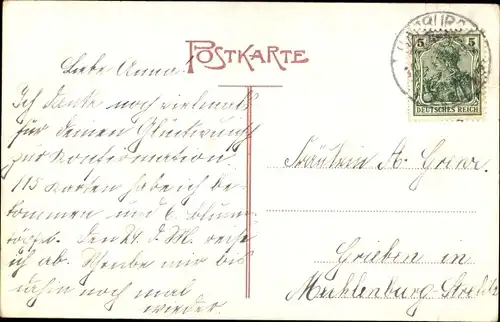 POSTKARTE
5 5
DEUTSCHES REICH
Liebe Anna!
Ich danke noch vielmals
für deinen Glückwunsch
zur Konfirmation.
115 Karten habe ich be-
kommen und 6 Blumen-
töpfe. Den 24. d. M. reise
ich ab. Schreibe mir bis
dahin noch mal
wieder.
Fräulein A.
Grieben in
Mecklenburg-Strelitz